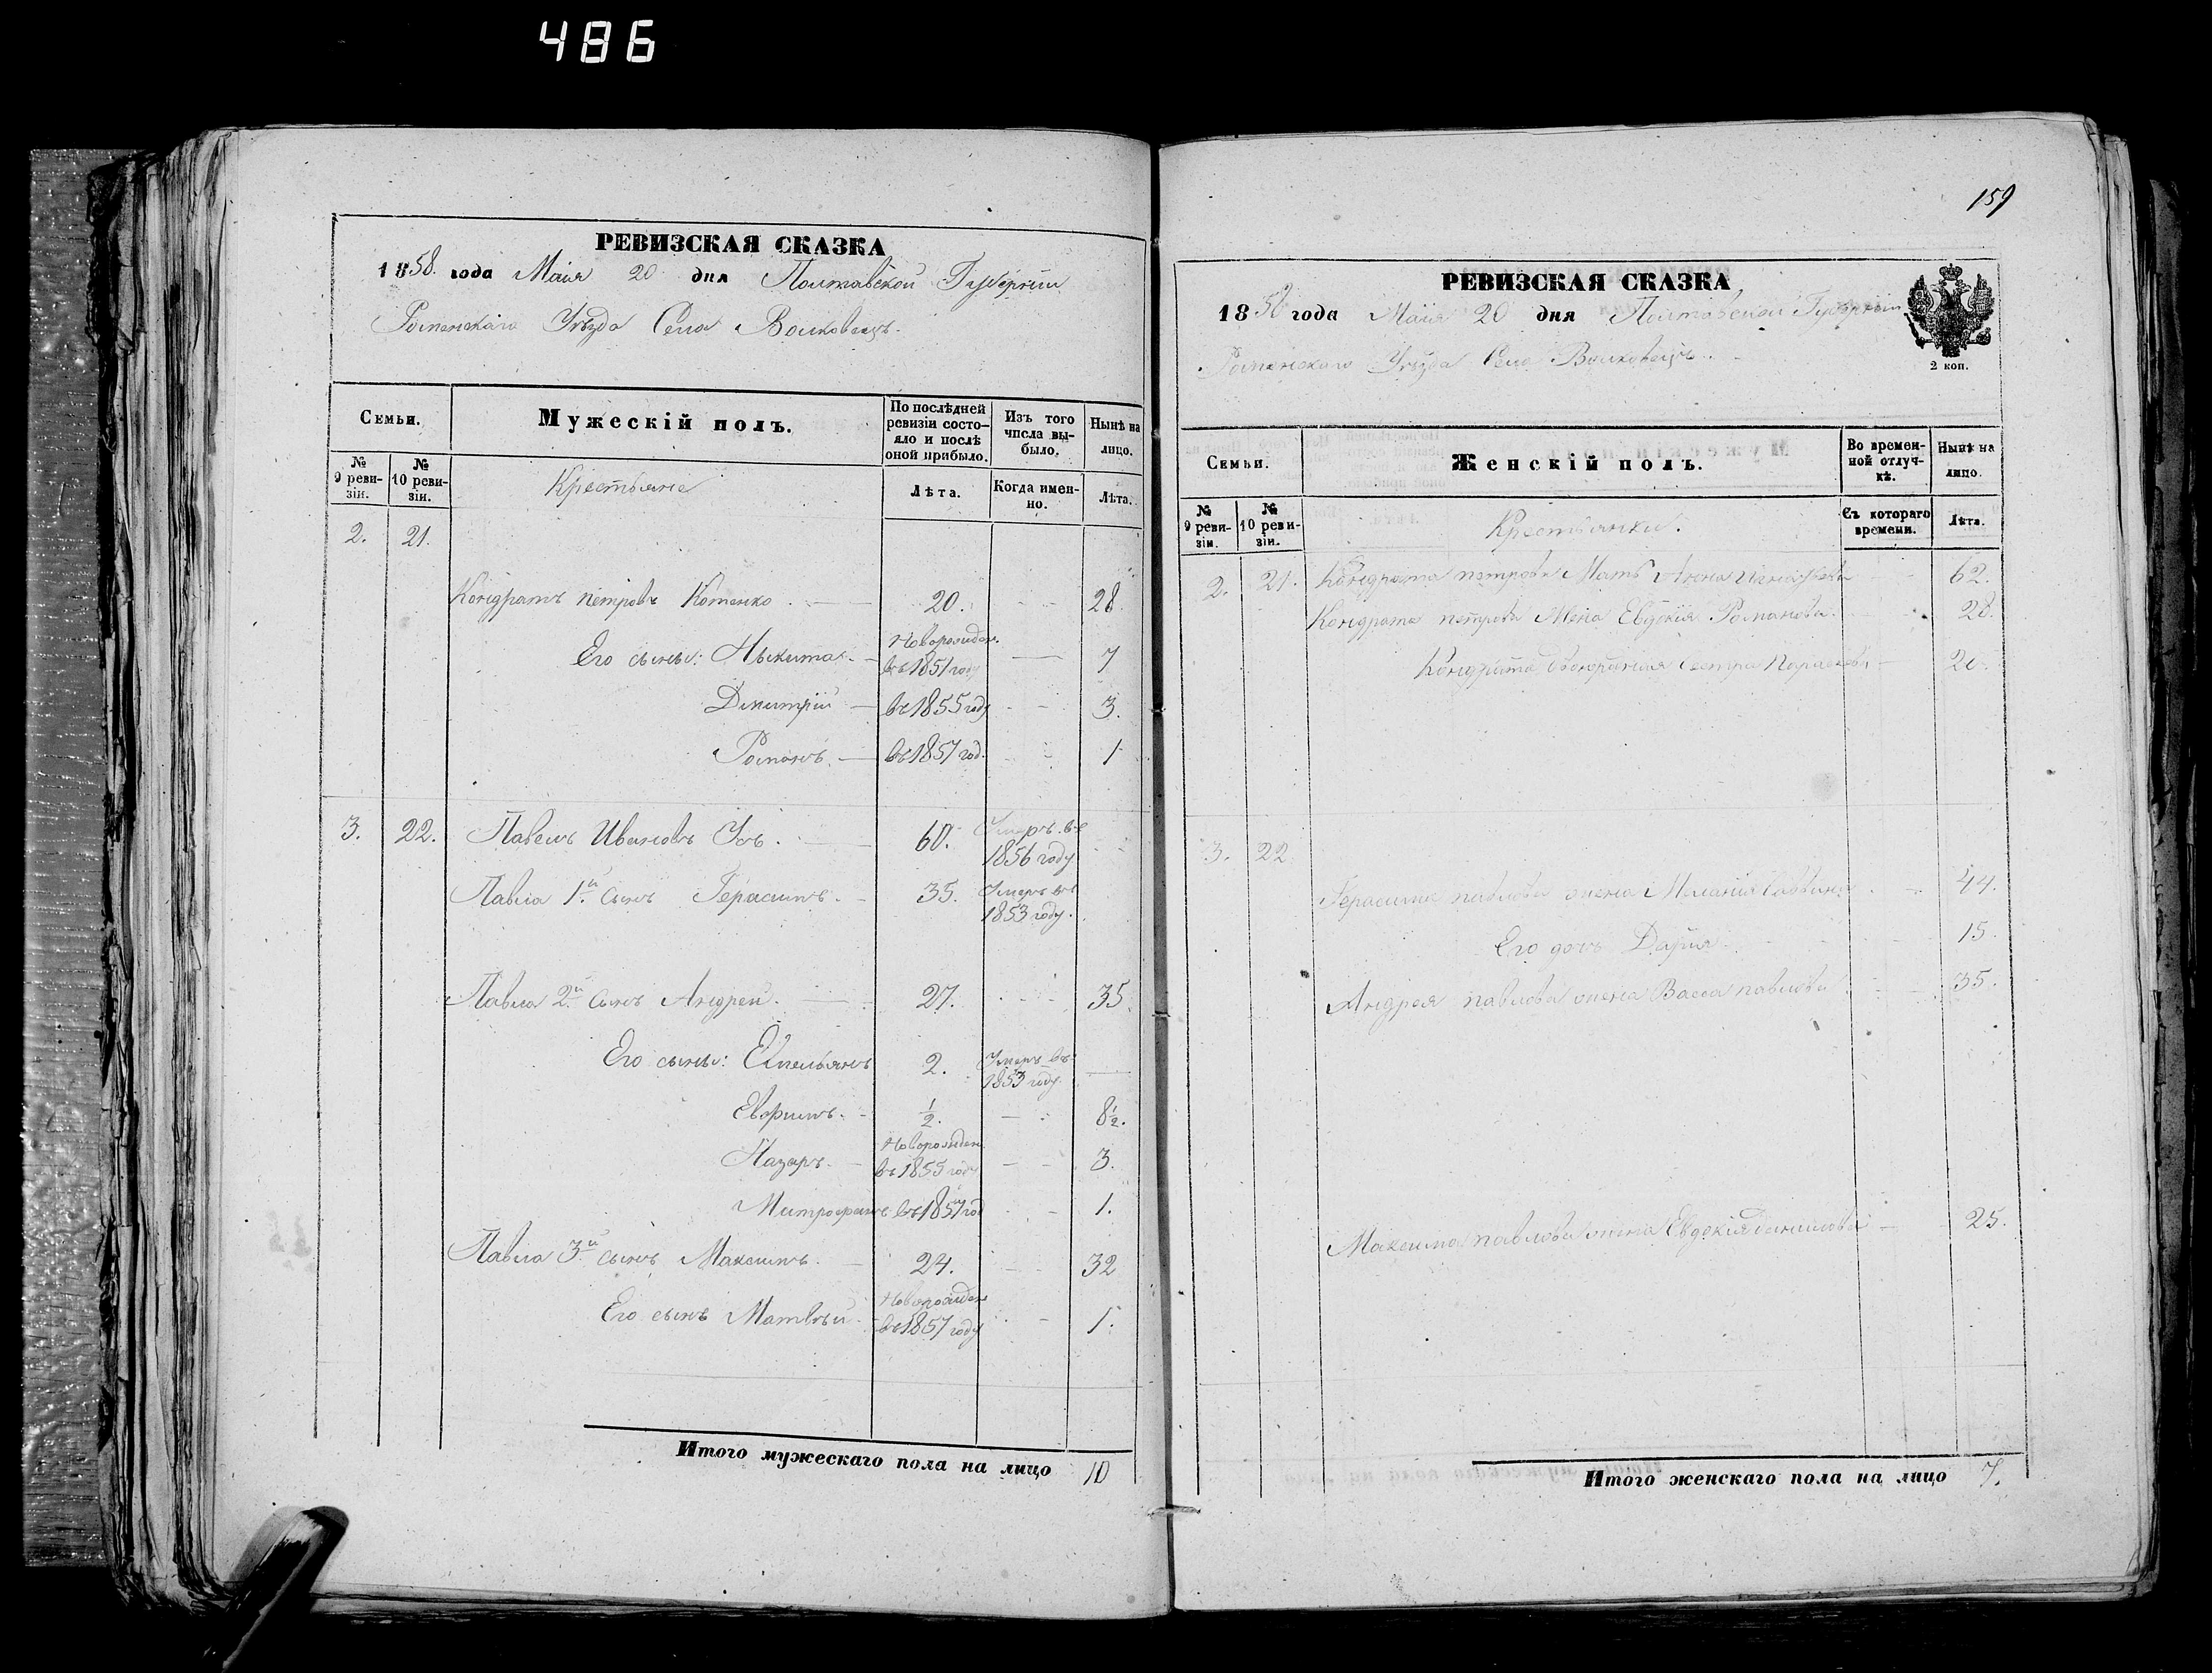 486
РЕВИЗСКАЯ СКАЗКА
1858 года Маія 20 дня Полтавской Губерніи
Роменскаго Уѣзда Села Волковецъ.
Семьи.
Мужескій полъ.
По послѣдней ревизіи состояло и послѣ оной прибыло.
Изъ того числа выбыло.
Нынѣ на лицо.
№ 9 ревизіи.
№ 10 ревизіи.
Крестьяне
Лѣта.
Когда именно.
Лѣта.
2. 21.
Кондратъ петровъ Котенко. 20. 28.
Его сыны: Никита Новорожден. въ 1851 году 7
Дмитрій въ 1855 году 3.
Романъ въ 1857 год. 1
3. 22. Павелъ Ивановъ 60. Умеръ въ 1856 году
Павла 1й сынъ Герасимъ. 35. Умеръ въ 1853 году.
Павла 2й сынъ Андрей. 27. 35.
Его сыны: Емельянъ 2. Умеръ въ 1853 году.
Евфимъ. ½. 8½.
Назаръ. Новорожден. въ 1855 году 3.
Митрофанъ въ 1857 год 1.
Павла 3й сынъ Максимъ. 24. 32
Его сынъ Матвѣй Новорожден въ 1857 году 1.
Итого мужескаго пола на лицо 10
159
РЕВИЗСКАЯ СКАЗКА
1858 года Маія 20 дня Полтавской Губерніи
Роменскаго Уѣзда Села Волковецъ.
2 коп.
Семьи.
Женскій полъ.
Во временной отлучкѣ.
Нынѣ на лицо.
№ 9 ревизіи.
№ 10 ревизіи.
Крестьянки.
Съ котораго времени.
Лѣта.
2. 21. Кондрата петрова Мать Анна 62.
Кондрата петрова Жена Евдокія Романова. 28.
Кондрата сестра 20.
3. 22.
Герасима павлова жена Меланія 44.
Его дочь Дарія 15.
Андрея павлова жена Васса павлова 35.
Максима павлова жена Евдокія данилова 25.
Итого женскаго пола на лицо 7.